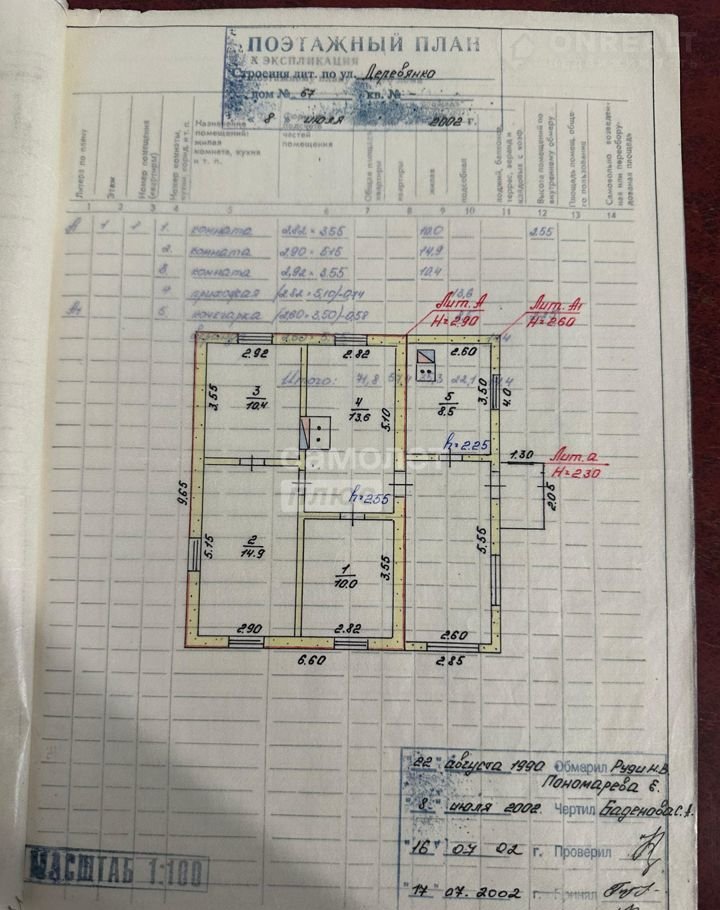 ПОЭТАЖНЫЙ ПЛАН
ONREALT
НЕДВИЖИМОСТЬ
К ЭКСПЛИКАЦИЯ
Строения лит. по ул. Деревянко
дом № 67 кв. № -
" 8 " июля 2002 г.
Литера по плану
Этаж
Номер помещения (квартиры)
Назначение помещений: жилая комната, кухня и т. п.
частей помещения
Общая площадь квартиры
квартиры
жилая
подсобная
лоджий, балконов, террас, веранд и кладовых с коэф.
Высота помещений по внутреннему обмеру
Площадь помещ. общего пользования
Самовольно возведенная или переоборудованная площадь
1 2 3 4 5 6 7 8 9 10 11 12 13 14
А 1 1 1. комната 2.82 × 3.55 10.0 2.55
2. комната 2.90 × 5.15 14.9
3. комната 2.92 × 3.55 10.4
4. прихожая (2.82 × 5.10)-0.74 13.6
А1 5. кочегарка (2.60 × 3.50)-0.58
Лит. А
Н=2.90
Лит. А1
Н=2.60
2.92 2.82 2.60
Итого: 71,8
3.55
3
10.4
4
13.6
5.10
5
8.5
3.50
4.0
h=2.25
1.30
Лит. а
Н=2.30
самолет
плюс
h=2.55
2.05
9.65
5.15
2
14.9
1
10.0
3.55
5.55
2.90 2.82 2.60
6.60 2.85
" 22 " августа 1990 Обмерил Руди Н.В.
Пономарева Е.
" 8 " июля 2002. Чертил Баденова С.А.
" 16 " 07 02 г. Проверил
" 17 " 07. 2002 г. Принял
МАСШТАБ 1:100